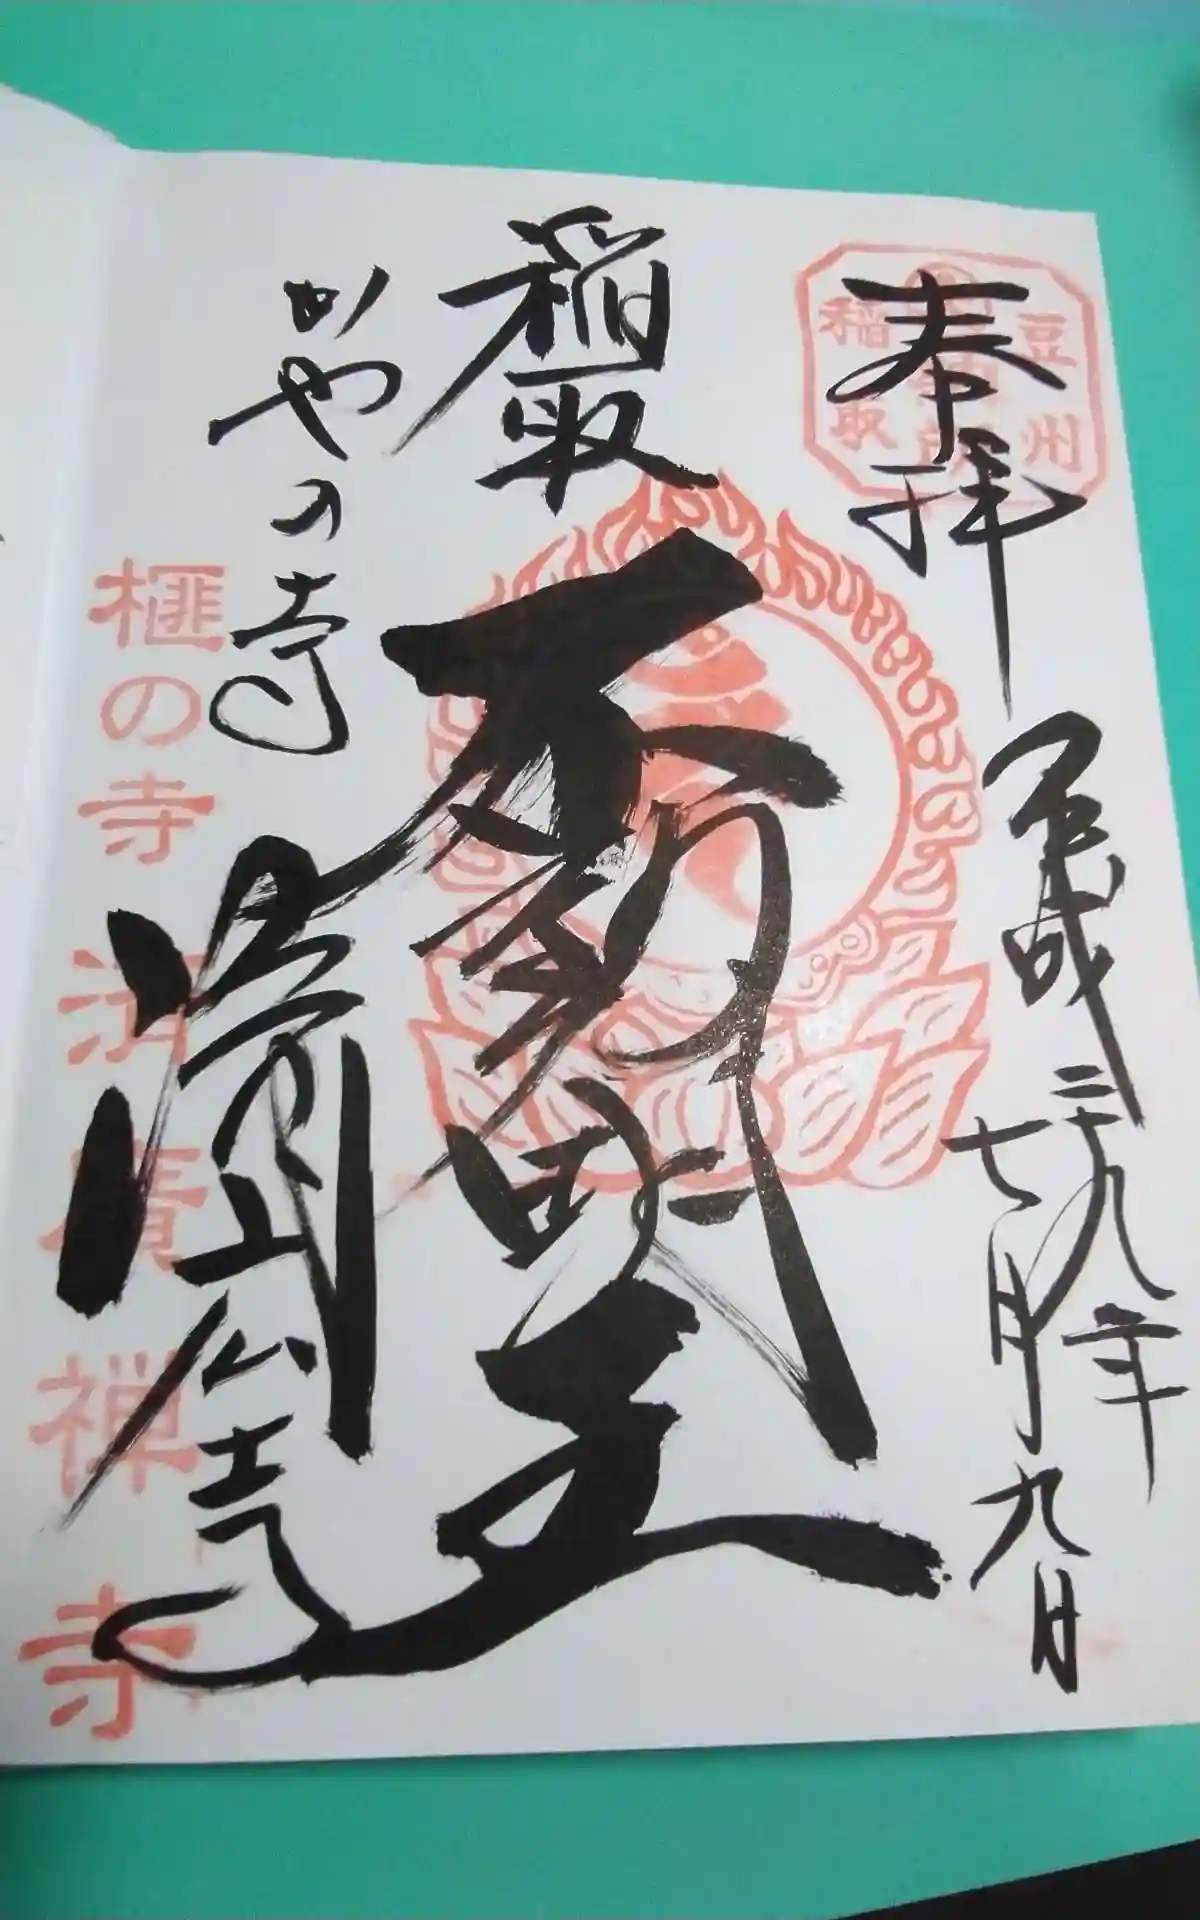 奉拝
平成二十九年
七月九日
豆州
稲取
稲取
不動明王
かやの寺
済廣寺
榧の寺 済廣禅寺